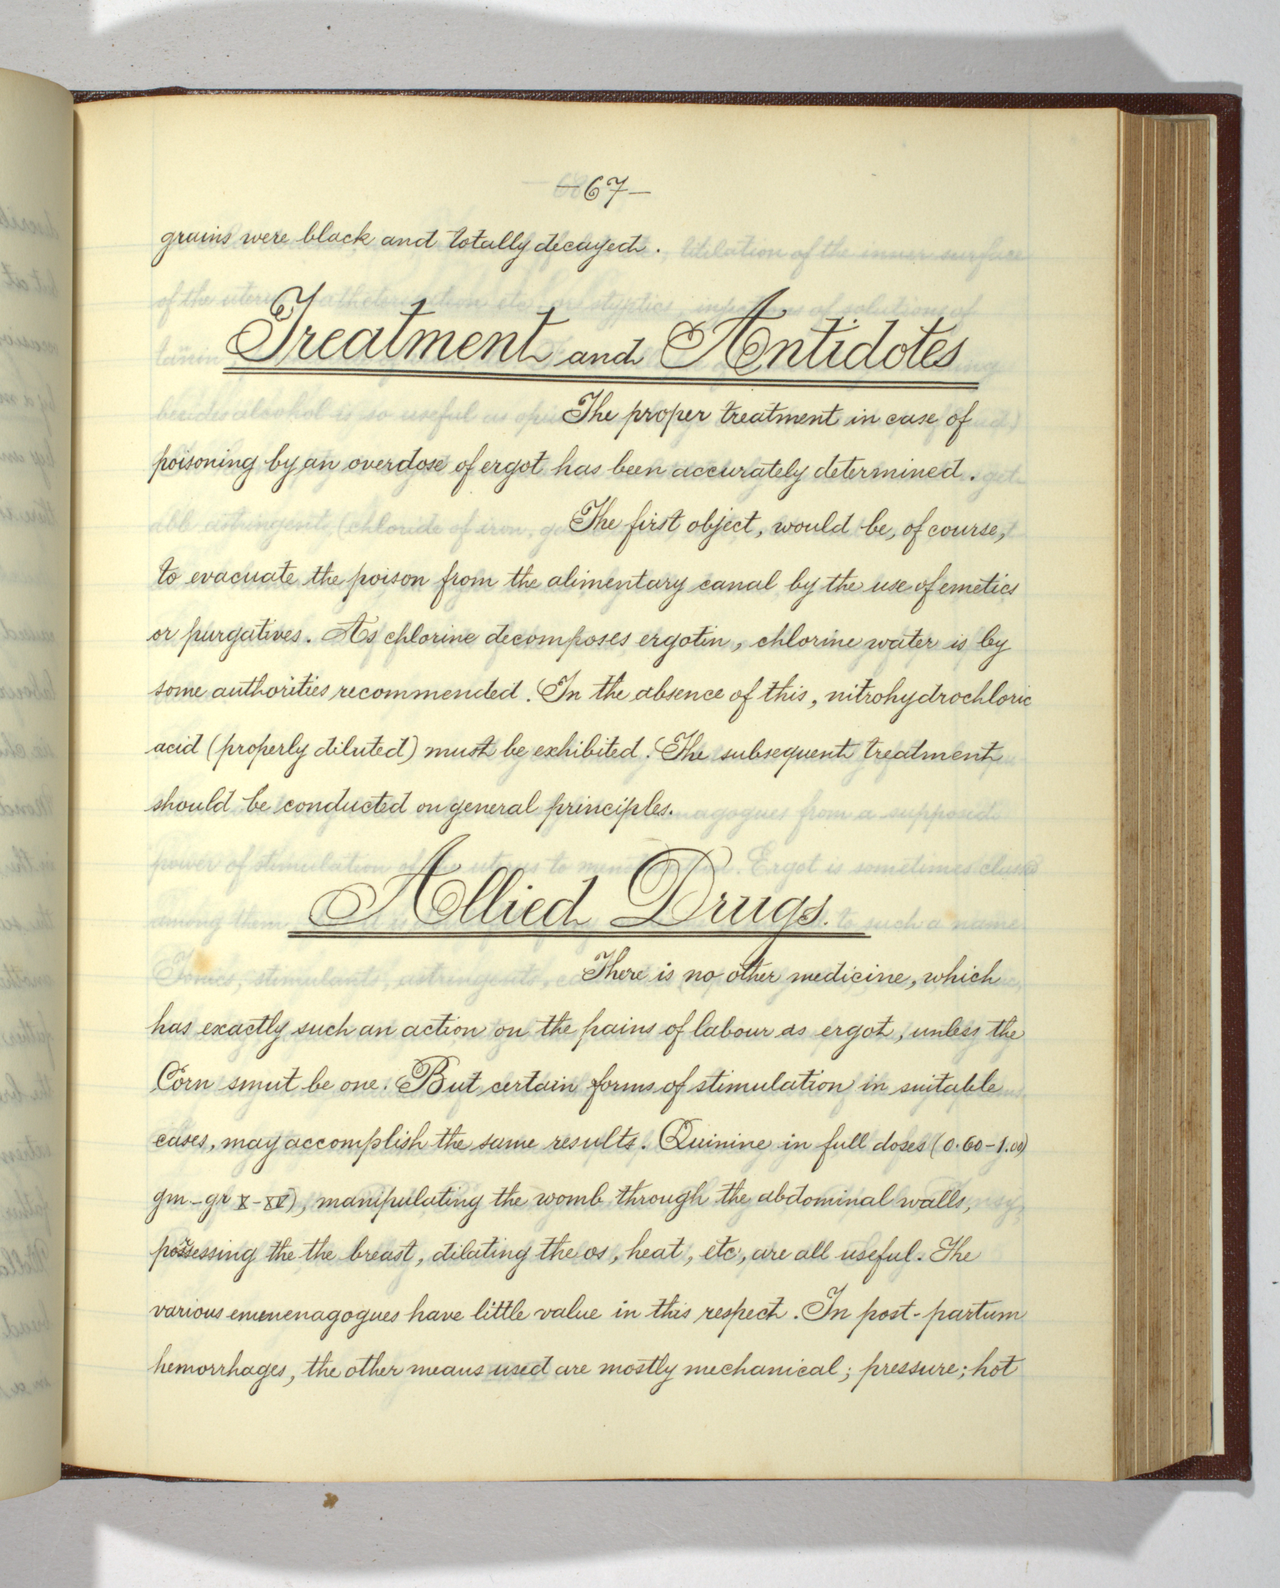 —67—
grains were black and totally decayed.
Treatment and Antidotes
The proper treatment in case of
poisoning by an overdose of ergot has been accurately determined.
The first object, would be, of course,
to evacuate the poison from the alimentary canal by the use of emetics
or purgatives. As chlorine decomposes ergotin, chlorine water is by
some authorities recommended. In the absence of this, nitrohydrochloric
acid (properly diluted) must be exhibited. The subsequent treatment
should be conducted on general principles.
Allied Drugs.
There is no other medicine, which
has exactly such an action on the pains of labour as ergot, unless the
Corn smut be one. But certain forms of stimulation in suitable
cases, may accomplish the same results. Quinine in full doses (0.60-1.00
gm-gr X-XV), manipulating the womb through the abdominal walls,
possessing the the breast, dilating the os, heat, etc, are all useful. The
various emenenagogues have little value in this respect. In post-partum
hemorrhages, the other means used are mostly mechanical; pressure; hot